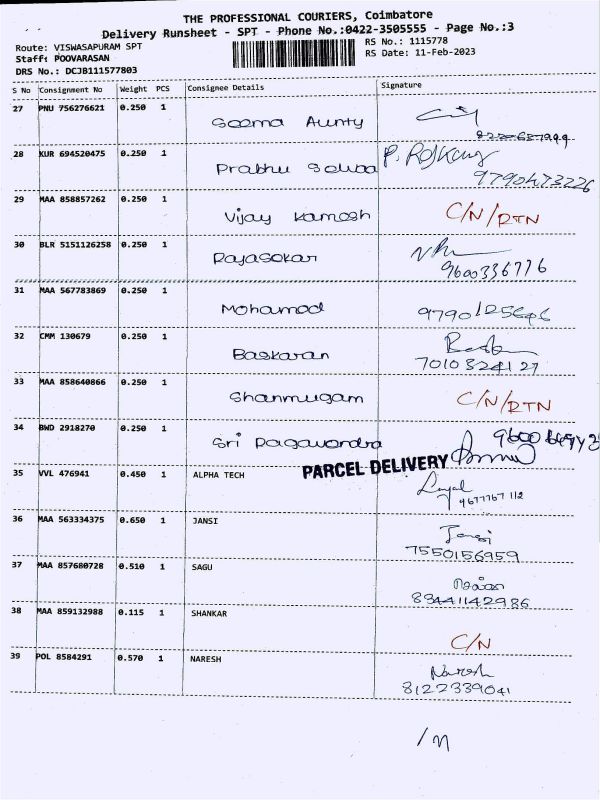 THE PROFESSIONAL COURIERS, Coimbatore
Delivery Runsheet - SPT - Phone No.:0422-3505555 - Page No.:3
Route: VISWASAPURAM SPT
RS No.: 1115778
Staff: POOVARASAN
RS Date: 11-Feb-2023
DRS No.: DCJB111577803
S No Consignment No Weight PCS Consignee Details Signature
27 PNU 756276621 0.250 1 Seema Aunty
28 KUR 694520475 0.250 1 Prabhu
9790473226
29 MAA 858857262 0.250 1 Vijay Kamesh C/N/RTN
30 BLR 5151126258 0.250 1 Rajasekar
9600336776
31 MAA 567783869 0.250 1 Mohamed 9790125646
32 CMM 130679 0.250 1 Baskaran
7010324127
33 MAA 858640866 0.250 1 Shanmugam C/N/RTN
34 BWD 2918270 0.250 1 Sri
PARCEL DELIVERY
35 VVL 476941 0.450 1 ALPHA TECH
9677767 112
36 MAA 563334375 0.650 1 JANSI Jansi
7550156959
37 MAA 857680728 0.510 1 SAGU
38 MAA 859132988 0.115 1 SHANKAR C/N
39 POL 8584291 0.570 1 NARESH Naresh
8122339041